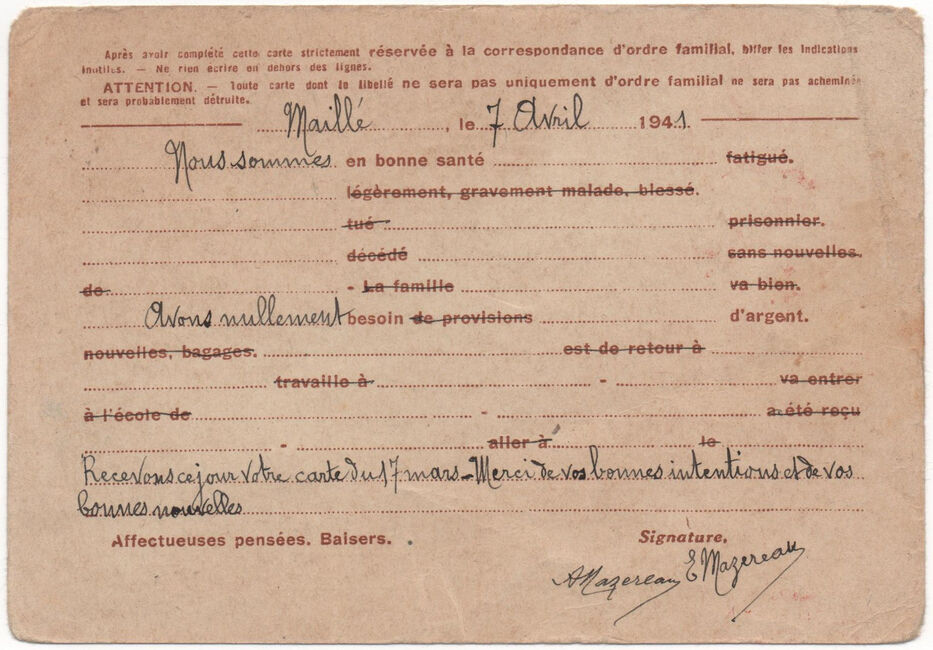 Après avoir complété cette carte strictement réservée à la correspondance d'ordre familial, biffer les indications
inutiles. — Ne rien écrire en dehors des lignes.
ATTENTION. — Toute carte dont le libellé ne sera pas uniquement d'ordre familial ne sera pas acheminée
et sera probablement détruite.
Maillé, le 7 Avril 1941
Nous sommes en bonne santé fatigué.
légèrement, gravement malade, blessé.
tué prisonnier.
décédé sans nouvelles
de - La famille va bien.
Avons nullement besoin de provisions d'argent.
nouvelles, bagages. est de retour à
travaille à - va entrer
à l'école de - a été reçu
- aller à le
Recevons ce jour votre carte du 17 mars - Merci de vos bonnes intentions et de vos
bonnes nouvelles
Affectueuses pensées. Baisers. Signature.
A Mazereau E Mazereau